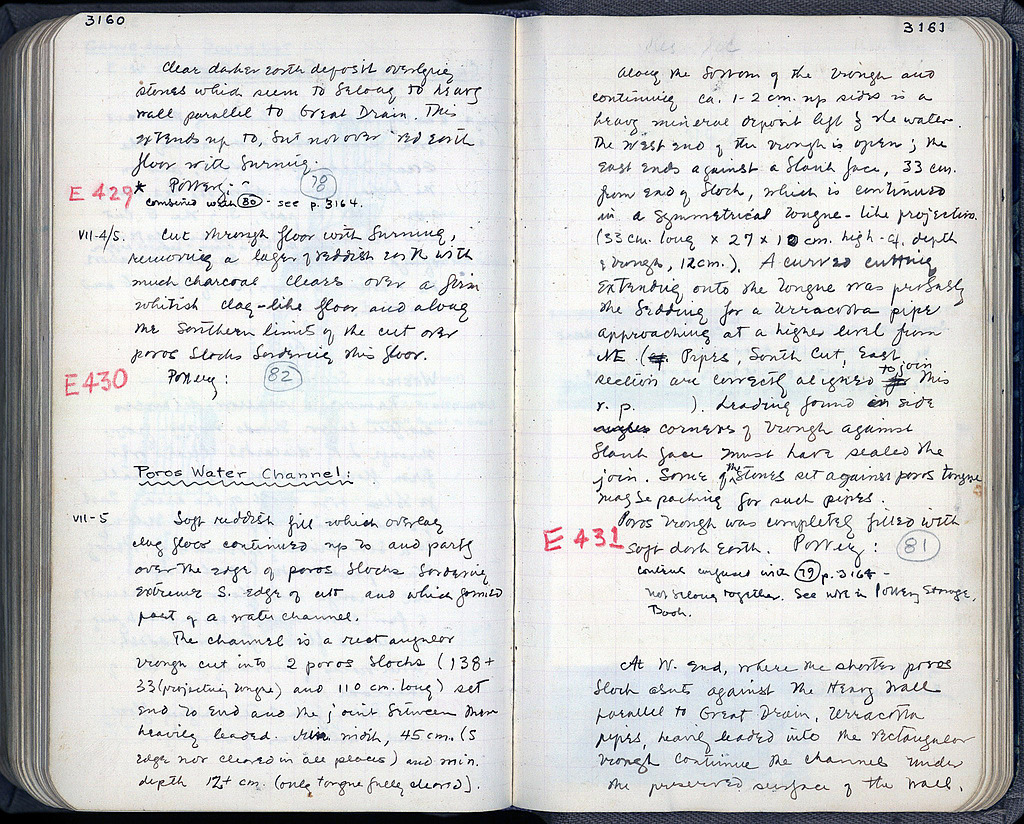 3160
Clear darker earth deposit overlying
stones which seem to belong to heavy
wall parallel to Great Drain. This
extends up to, but not over red earth
floor with burning.
E 429 * Pottery: 78
combined with 80 - see p. 3164.
VII-4/5. Cut through floor with burning,
removing a layer of reddish earth with
much charcoal clears over a firm
whitish clay-like floor and along
the Southern limits of the cut over
poros blocks bordering this floor.
E 430 Pottery: 82
Poros Water Channel:
VII-5 Soft reddish fill which overlay
clay floor continued up to and partly
over the edge of poros blocks bordering
extreme S. edge of cut and which formed
part of a water channel.
The channel is a rectangular
trough cut into 2 poros blocks (138+
33 (projecting tongue) and 110 cm. long) set
end to end and the joint between them
heavily leaded. width, 45 cm. (S
edge not cleared in all places) and min.
depth 12+ cm. (only tongue fully cleared).
3161
Along the bottom of the trough and
continuing ca. 1-2 cm. up sides is a
heavy mineral deposit left by the water.
The West end of the trough is open; the
East ends against a blank face, 33 cm.
from end of block, which is continued
in a symmetrical tongue-like projection.
(33 cm. long x 27 x 10 cm. high - cf. depth
of trough, 12 cm.). A curved cutting
extending onto the tongue was probably
the bedding for a terracotta pipe
approaching at a higher level from
NE. (Pipes, South Cut, East
section are correctly aligned to join this
v. p. ). Leading found in side
corners of trough against
blank face must have sealed the
join. Some of the stones set against poros tongue
may be packing for such pipes.
Poros trough was completely filled with
E 431 soft dark earth. Pottery: 81
confused with 79 p. 3164 -
not belong together. See note in Pottery Storage
Book.
At W. end, where the shorter poros
block abuts against the Heavy Wall
parallel to Great Drain, terracotta
pipes, heavily leaded into the rectangular
trough continue the channel under
the preserved surface of the wall.